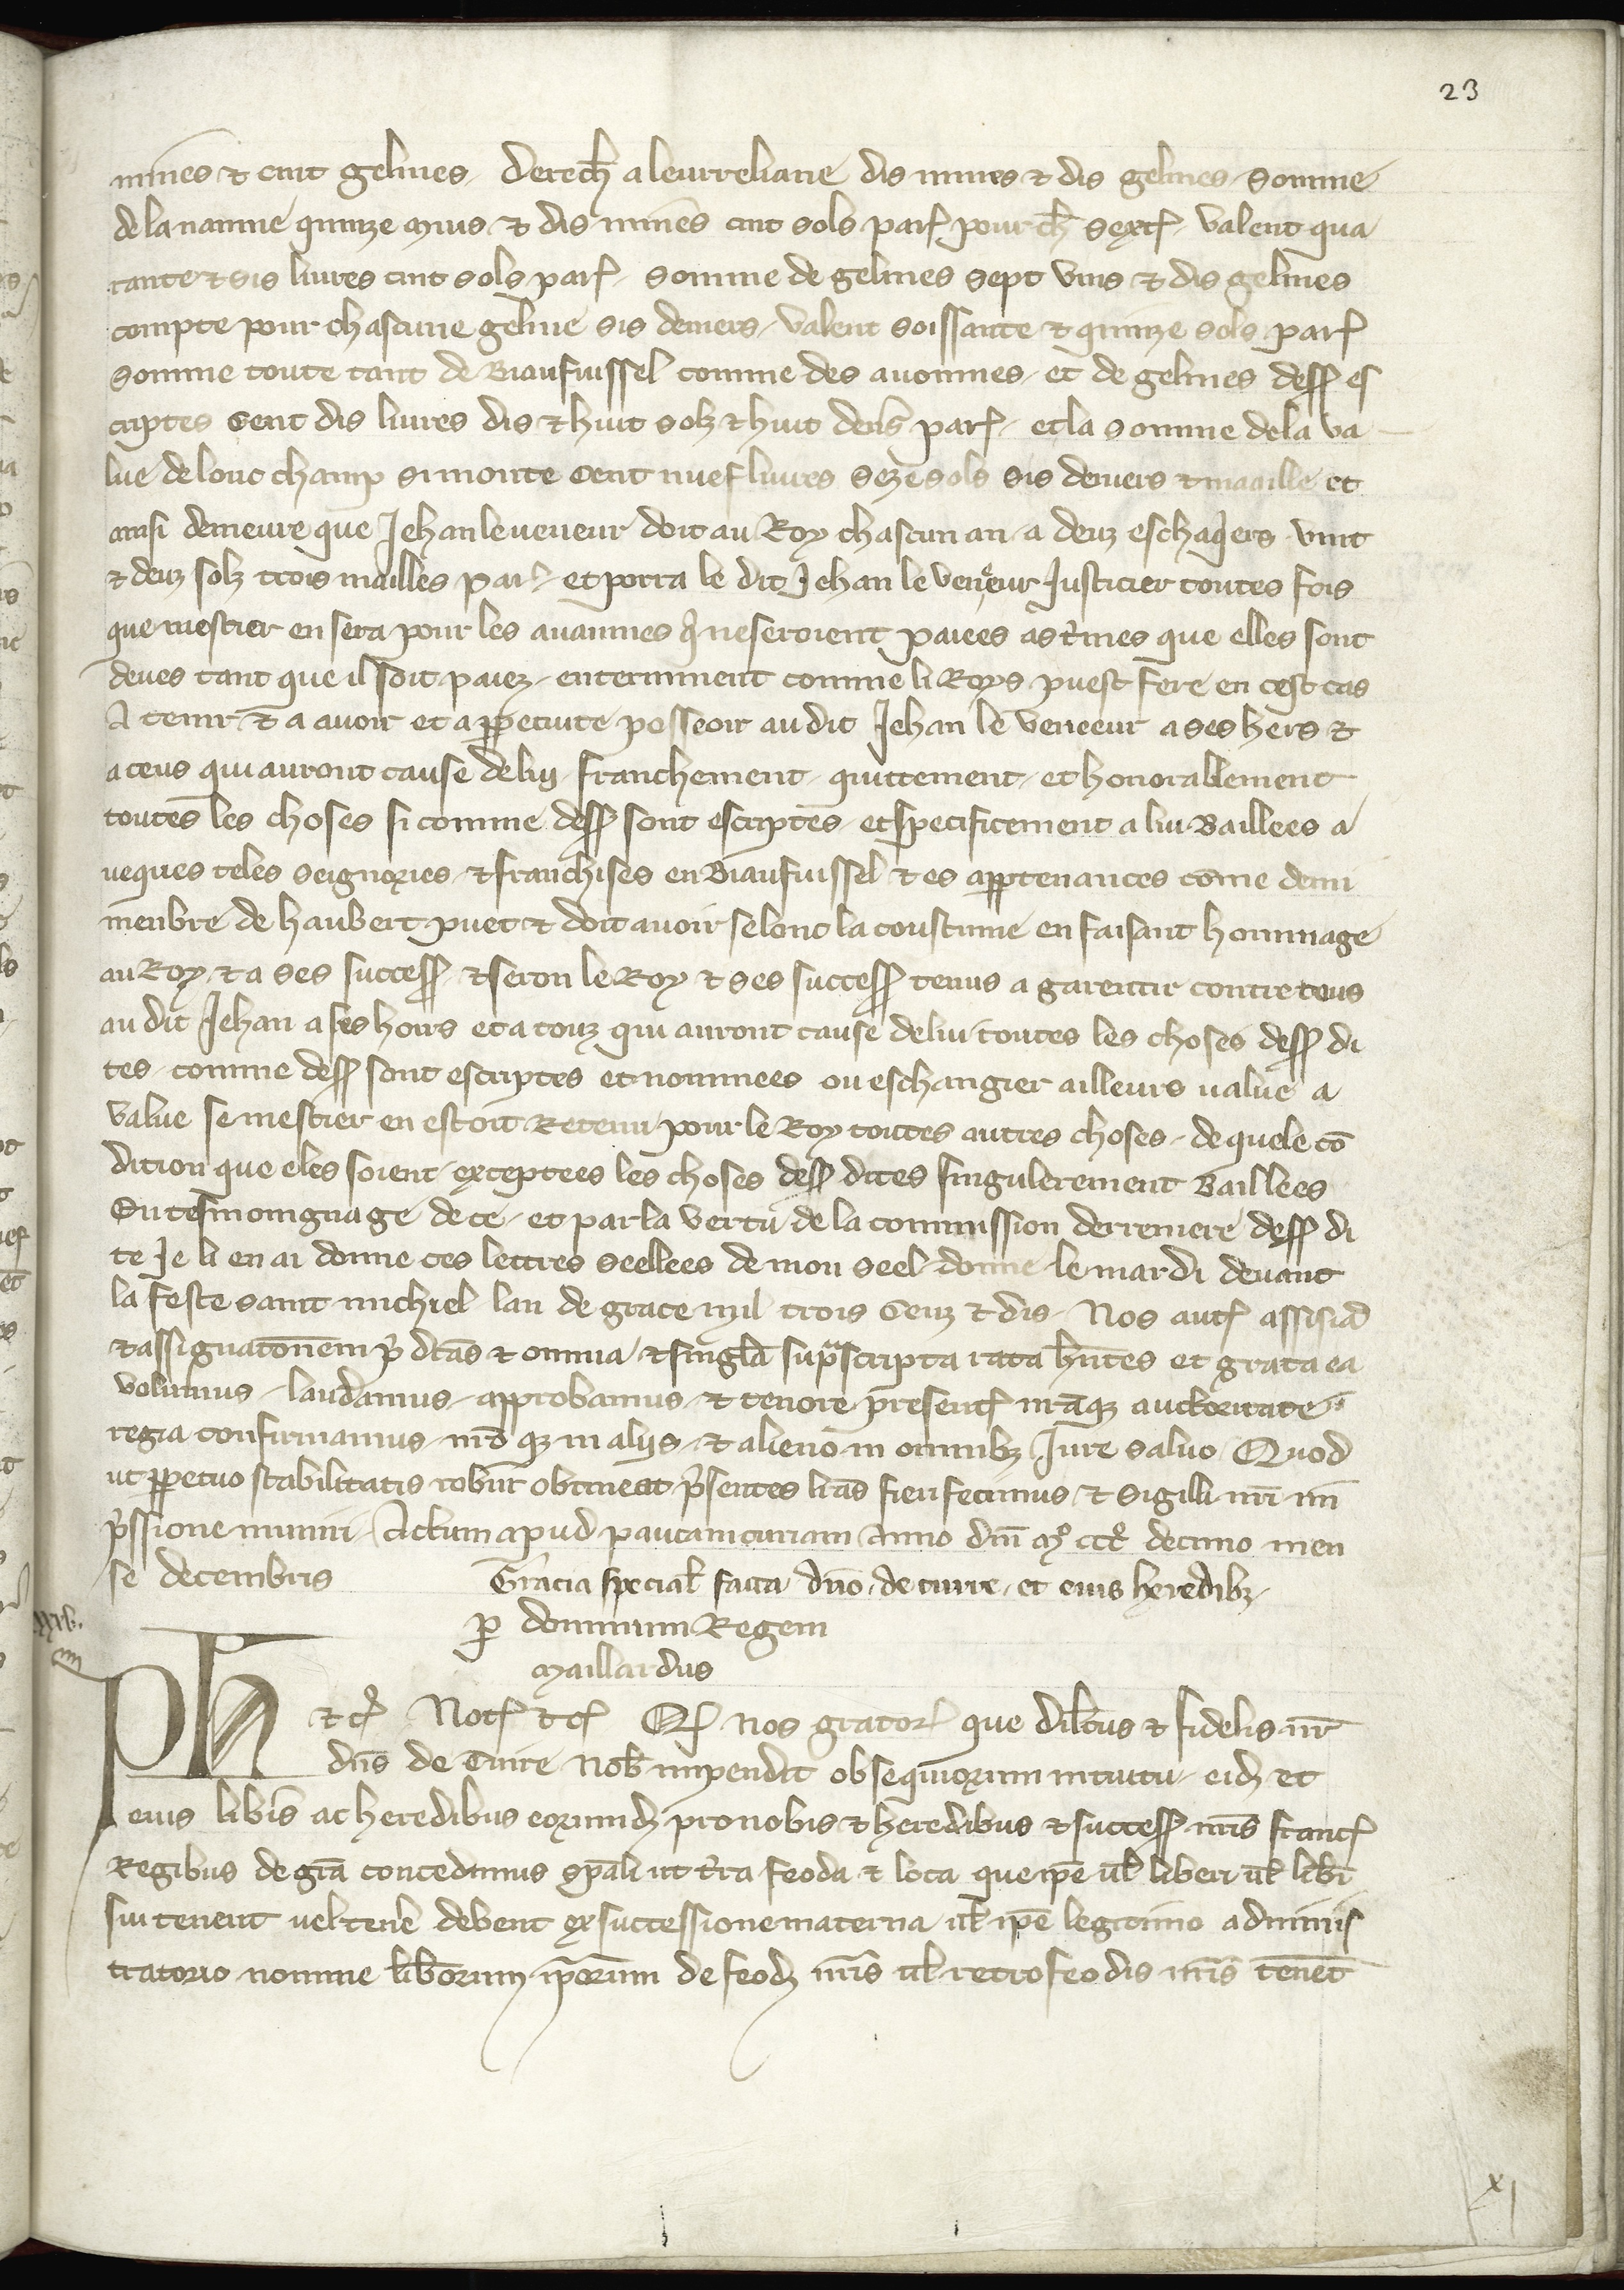 23
mines ⁊ cint gelines. Derech̄ a leurreliane dis mines ⁊ dis gelines. Somme
de la nainne quinze muis ⁊ dis mines cint sols par̄ pour ch̄ sext̄. valent qua
rante ⁊ sis liures cint sols par̄. Somme de gelines sept vins ⁊ dis gelines
compte pour chascune geline sis deniers. valent soissante ⁊ quinze sols par̄
Somme toute tant de Biaufuissel comme des auoinnes. et de gelines dess̄ es
criptes Cent dis liures dis ⁊ huit solz ⁊ huit den̄s par̄. et la somme de la va
lue de lonc champ si monte Cent nuef liures seze sols sis deniers ⁊ maaille et
ainsi demeure que Jehan le veneur doit au Roy chascun an. a deuz eschaq̄ers. vint
⁊ deuz solz trois mailles par̄. et porra le dit Jehan le veneeur Justicier toutes fois
que mestier en sera pour les auainnes q̄ ne seroient paiees as t̄mes que elles sont
deues tant que il soit paiez. enterinment comme li Roys puest fere en cest cas
A tenir ⁊ a auoir et a pp̄etuite posseoir au dit Jehan le veneeur a ses hers ⁊
a ceus qui auront cause de luy. franchement. quittement. et honorablement
toutes les choses si comme dess̄ sont escriptes. et specificement a lui Baillees a
ueques teles seignories. ⁊ franchises en Biaufuissel ⁊ es app̄tenances cōme demi
menbre de haubert puet ⁊ doit auoir selonc la coustume en faisant hommage
au Roy. ⁊ a ses success̄. ⁊ seron le Roy ⁊ ses success̄ tenus a garentir contre tous
au dit Jehan a ses hoirs et a touz qui auront cause de lui toutes les choses dess̄ di
tes. comme dess̄ sont escriptes et nommees ou eschangier ailleurs value a
value se mestier en estoit Retenu pour le Roy toutes autres choses. de quele cō
dition que eles soient. exceptees les choses dess̄ dites singulerement Baillees
En tesmoingnage de ce. et par la vertu de la commission derreniere dess̄ di
te Je li en ai donne ces lettres seellees de mon seel. donne le mardi deuant
la feste saint michiel lan de grace mil trois Cenz ⁊ dis. Nos aut̄ assisiā
⁊ assignatōnem p̄ dc̄as ⁊ omnia ⁊ singl̄a sup̄scripta rata hn̄tes et grata ea
volumus. laudamus. approbamus. ⁊ tenore present̄ nr̄aq; auctoritate
regia confirmamus. nr̄o q; in alijs. ⁊ alieno in omnib; Jure saluo Quod
ut pp̄etuo stabilitatis robur obtineat p̄sentes lr̄as fieri fecimus ⁊ sigilli nr̄i im
p̄ssione muniri. Actum apud pontamcuriam Anno dn̄i mº cccº decimo men
se decembris Gracia special̄ facta dn̄o de turre. et eius heredib;.
p̄ dominum Regem
Maillardus
Ph ⁊ c̄ Not̄ ⁊ c̄ Q̄ nos grator̄ que dilc̄us ⁊ fidelis nr̄
dn̄s de Turre nob̄ impendit obsequiorum intuitu. eid̄ et
eius lib̄is ac heredibus eorumd̄ pro nobis ⁊ heredibus ⁊ success̄ nr̄is franc̄
Regibus de gr̄a concedimus sp̄ali ut t̄ra feoda ⁊ loca que ip̄e ul̄ liberi ul̄ lib̄i
sui tenent uel tene̅ debent ex successione materna ul̄ ip̄e legitimo adminis
tratorio nomine liberorum ip̄orum de feod̄ nr̄is ul̄ retrofeodis nr̄is tenēt